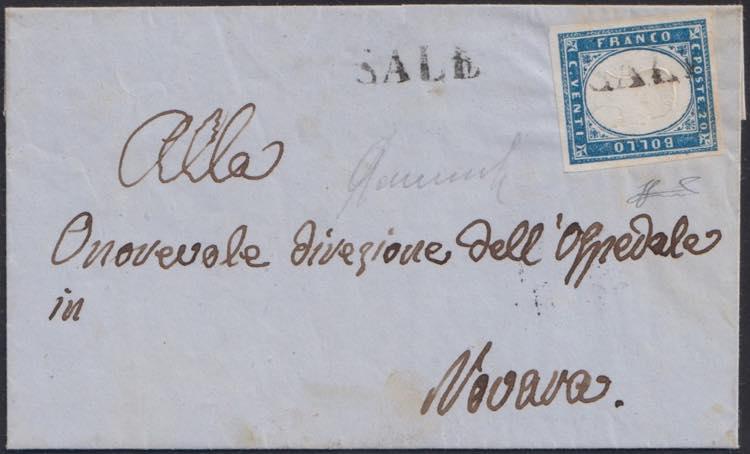 SALE
SALE
FRANCO
C. POSTE 20
BOLLO
C. VENTI
Alla
Onorevole direzione dell'Ospedale
in
Novara.